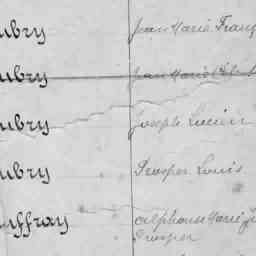 ubry Jean Marie Franç
ubry Jean Marie
ubry Joseph Lucien
ubry Prosper Louis
uffray Alphonse Marie
Prosper